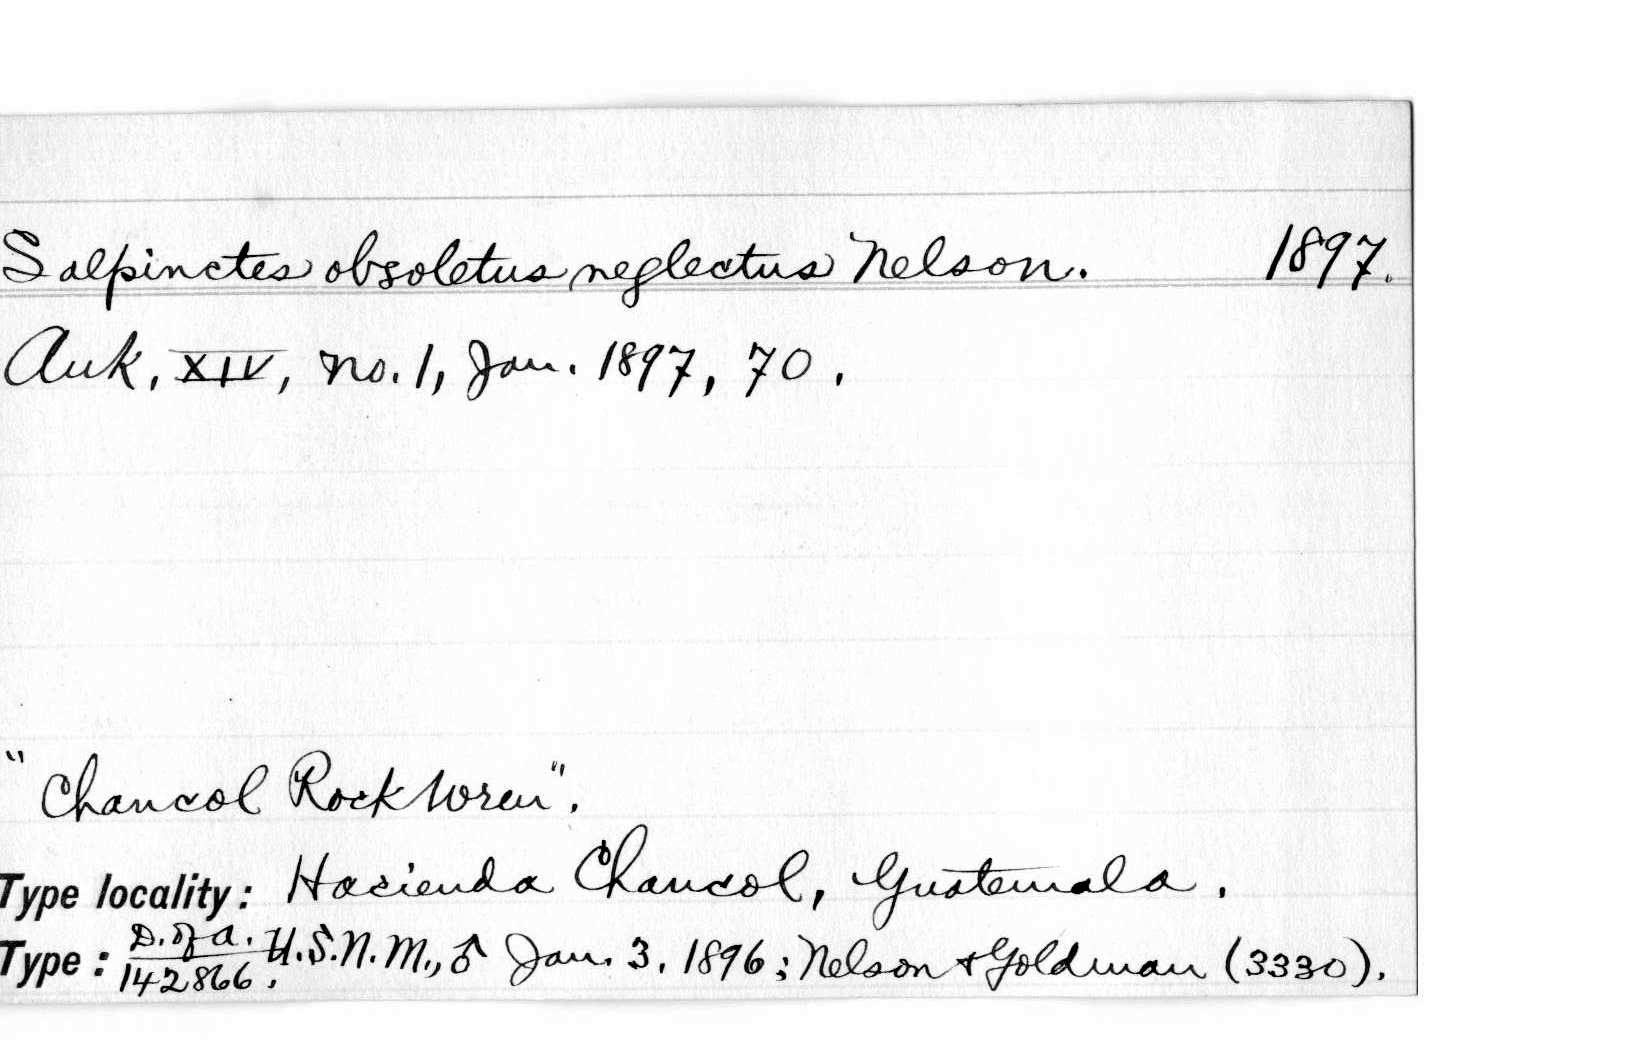 Salpinctes obsoletus neglectus Nelson. 1897.
Auk, XIV, no. 1, Jan. 1897, 70.
"Chancol Rock Wren".
Type locality: Hacienda Chancol, Guatemala.
Type: D. of A. 142866. U.S.N.M., ♂ Jan. 3, 1896; Nelson & Goldman (3330).